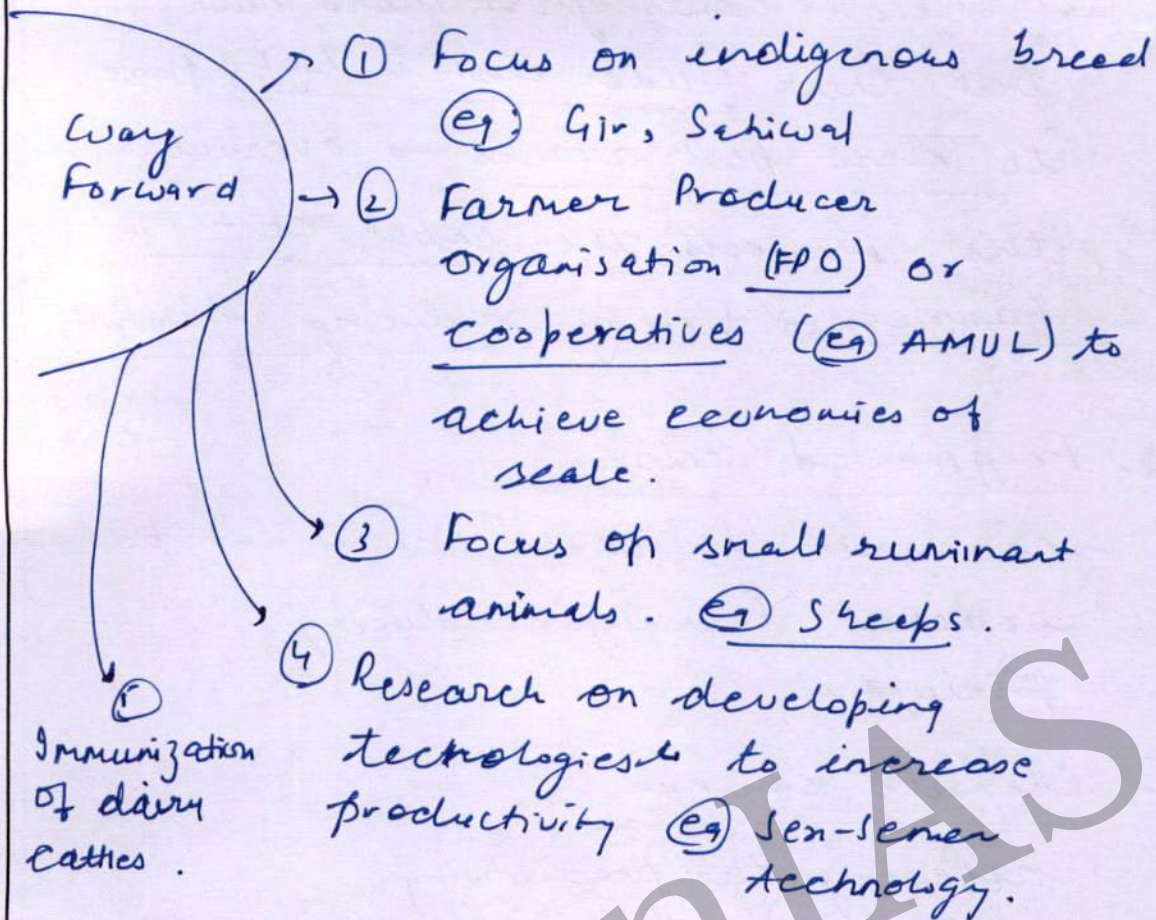 Way
Forward
① Focus on indigenous breed
eg: Gir, Sahiwal
② Farmer Producer
organisation (FPO) or
cooperatives (eg AMUL) to
achieve economies of
scale.
③ Focus on small ruminant
animals. eg Sheeps.
④ Research on developing
technologies to increase
productivity eg Sex-Semen
Technology.
⑤
Immunization
of dairy
cattles.
IAS